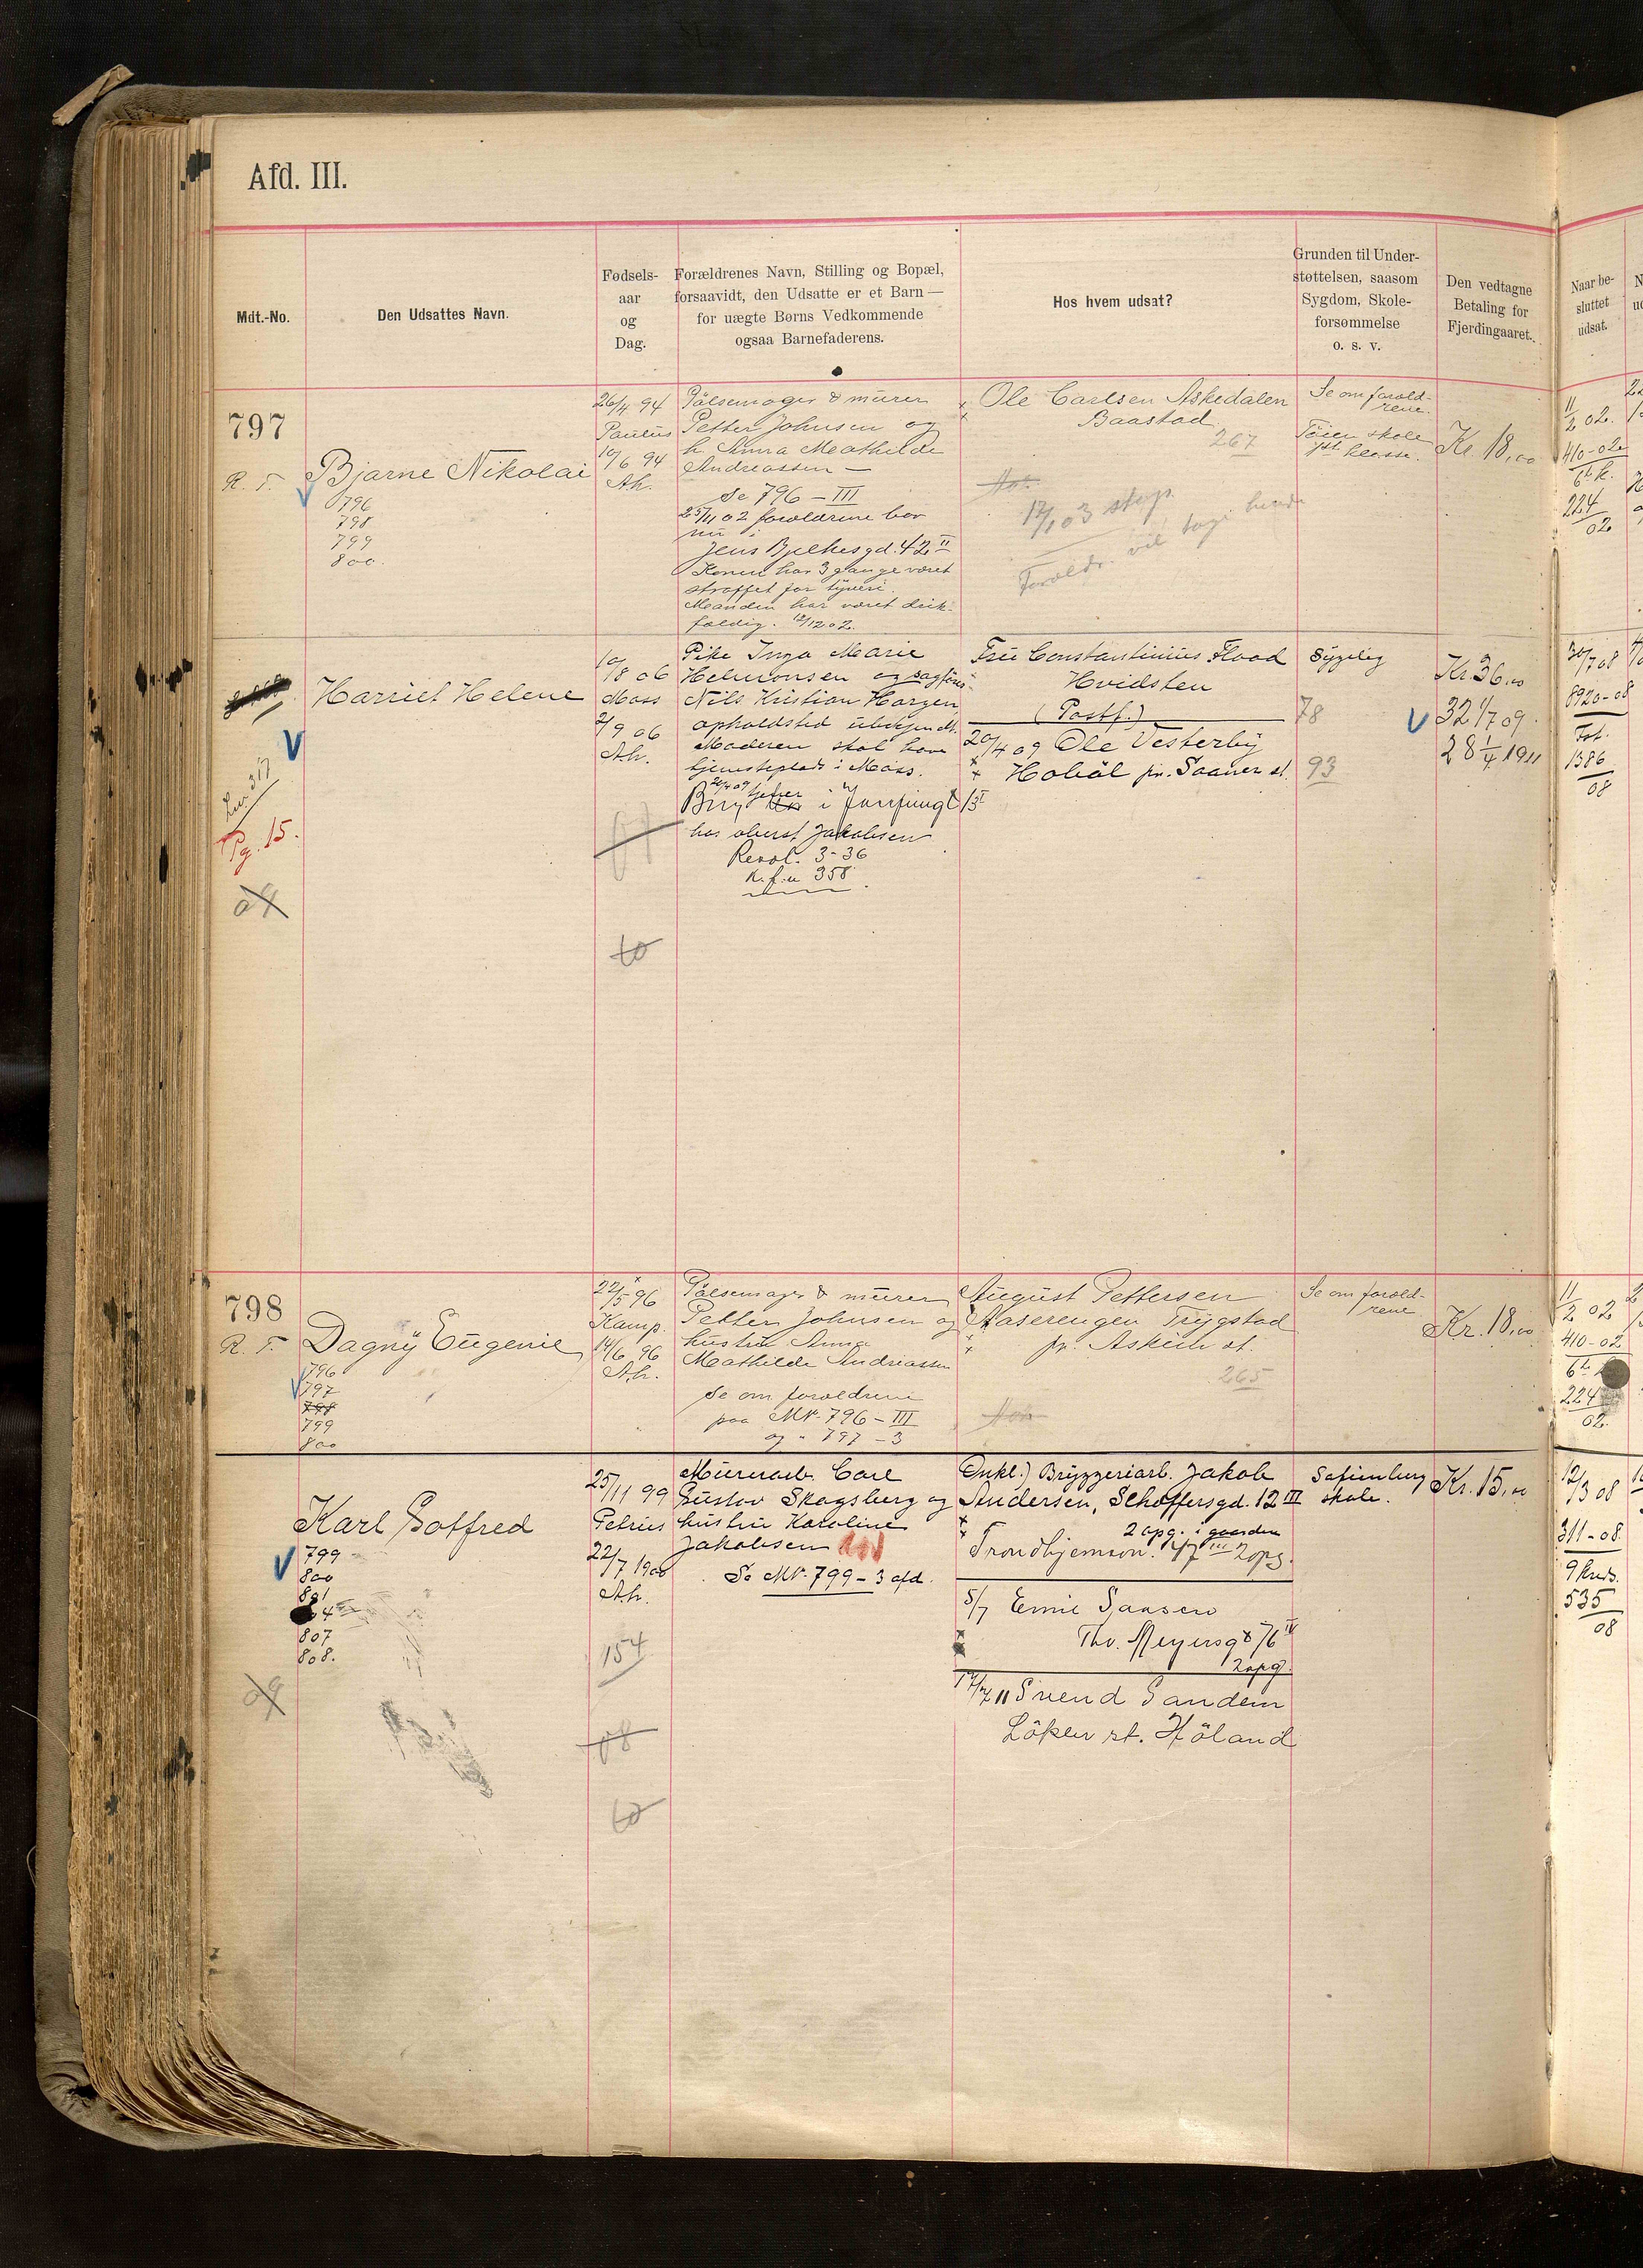 Afd. III.
Mdt.-No.
Den Udsattes Navn.
Fødsels-
aar
og
Dag.
Forældrenes Navn, Stilling og Bopæl,
forsaavidt, den Udsatte er et Barn —
for uægte Børns Vedkommende
ogsaa Barnefaderens.
Hos hvem udsat?
Grunden til Under-
støttelsen, saasom
Sygdom, Skole-
forsømmelse
o. s. v.
Den vedtagne
Betaling for
Fjerdingaaret.
Naar be-
sluttet
udsat.
797
R. T.
Bjarne Nikolai
796
798
799
800.
26/4 94
Paulus
10/6 94
Ah.
Pölsemager & murer
Petter Johnsen og
h Anna Mathilde
Andreassen —
Se 796 – III
25/11 02 forældrene bor
nu i
Jens Bjelkesgd. 42 II
Konen har 3 gange været
straffet for tyveri.
Manden har været drik-
fældig. 12/12 02.
Ole Carlsen Askedalen
Baastad
267
17/1 03 stop.
Forældr. vil tage hende
Se om foræld-
rene.
Töien skole
klasse.
Kr. 18,00
11/2 02.
410-02
224
02
Harriet Helene
Pg. 15.
10/8 06
Moss
2/9 06
Ah.
Pike Inga Marie
Helmonsen og sagförer
Nils Kristian Horgen,
opholdsted ubekjendt.
Moderen skal have
tjenesteplads i Moss.
hos oberst Jakobsen
Resol. 3-36
K.f.u 358
Fru Constantinius Flood
Hvidsten
(Postf.)
20/4 09 Ole Vesterby
Haböl pr. Saaner st.
Sygelig
78
93
Kr. 36.00
32 1/7 09.
28 1/4 1911
30/7 08
8920-08
Fat.
1386
08
798
R. T.
Dagny Eugenie
796
797
798
799
800
22/5 96
Kamp.
14/6 96
Ah.
Pölsemager & murer
Petter Johnsen og
hustru Anna
Mathilde Andreassen
Se om forældrene
paa Mt. 796 – III
og " 797 – 3
August Pettersen
Aaserengen Trygstad
pr. Askim st.
265
Se om foræld-
rene
Kr. 18,00
11/2 02
410-02
224
02.
Karl Gotfred
799
800
801
807
808.
25/11 99
Petrus
22/7 1900
Ah.
154
08
10
Murerarb. Carl
Gustav Skagsberg og
hustru Karoline
Jakobsen
Se Mt. 799 – 3 afd.
Onkel.) Bryggeriarb. Jakob
Andersen, Schoffersgd. 12 III
2 opg. i gaarden
Trondhjemsvn. 47 III 2 opg.
5/7 Emil Paasen
Thv. Meyersgd 76 IV
2 opg
17/7 11 Svend Sandem
Löken st. Höland
skole.
Kr. 15,00
12/3 08
311-08
535
08